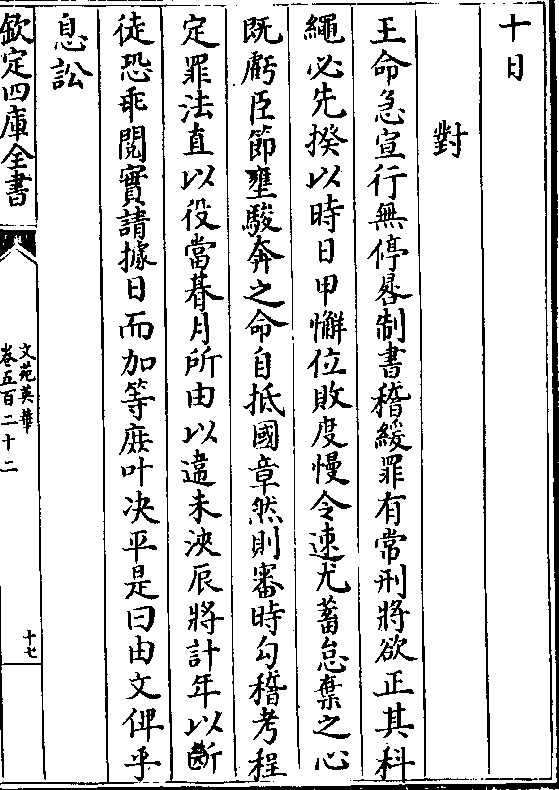 十日
對
王命急宣行無停晷制書稽緩罪有常刑將欲正其科
繩必先揆以時日甲懈位敗度慢令速尤蓄怠棄之心
既虧臣節壅駿奔之命自抵國章然則審時勾稽考程
定罪法直以役當暮月所由以違未浹辰將計年以斷
徒恐乖閲實請據日而加等庶叶决平是曰由文俾乎
息訟
欽定四庫全書
文苑英華
卷五百二十二
十七